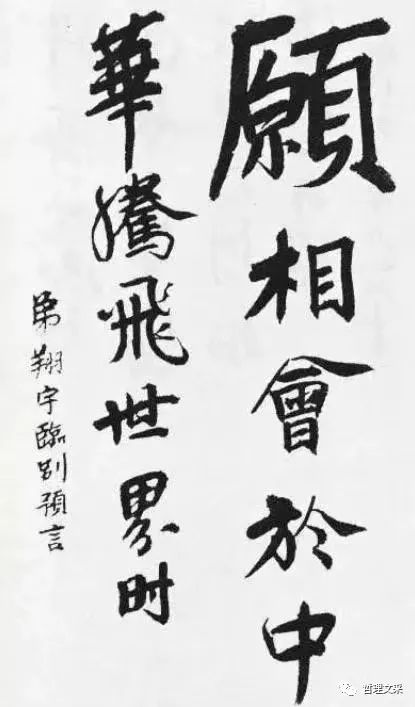 願相會於中
華騰飛世界时
弟翔宇臨别預言
哲理文采